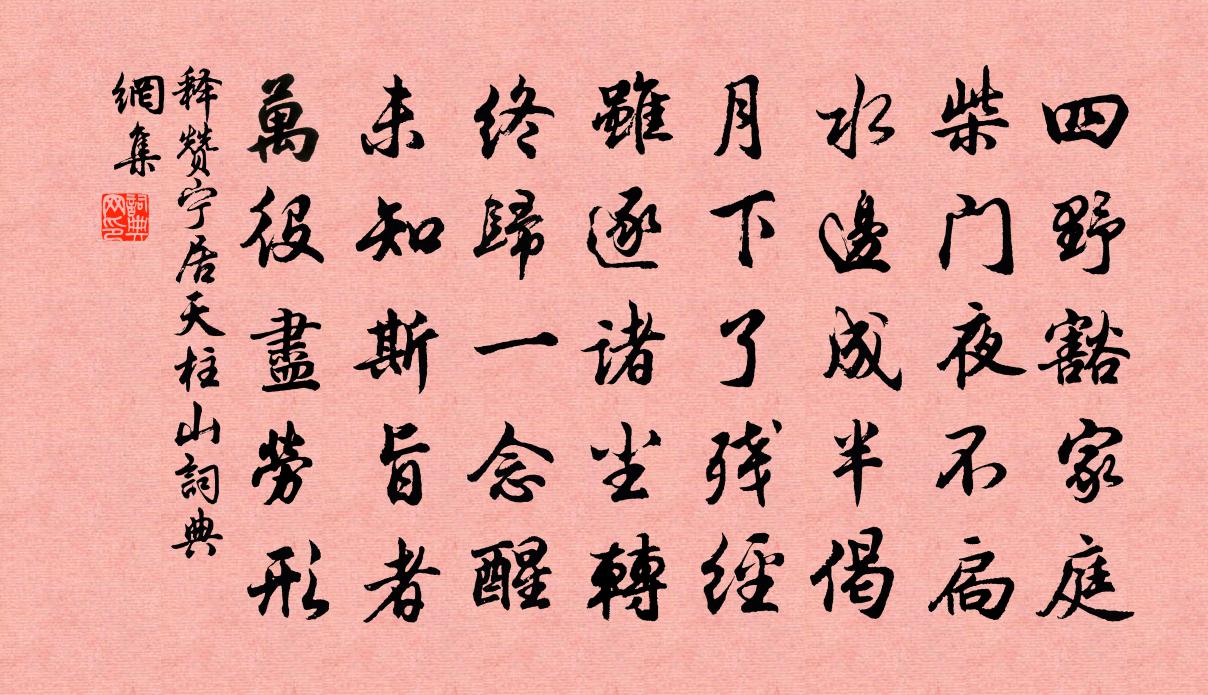 四野豁家庭
柴门夜不扃
水邊成半偈
月下了残經
雖逐诸尘轉
終歸一念醒
未知斯旨者
萬役盡勞形
释赞宁居天柱山詞典
網集
詞典
网印